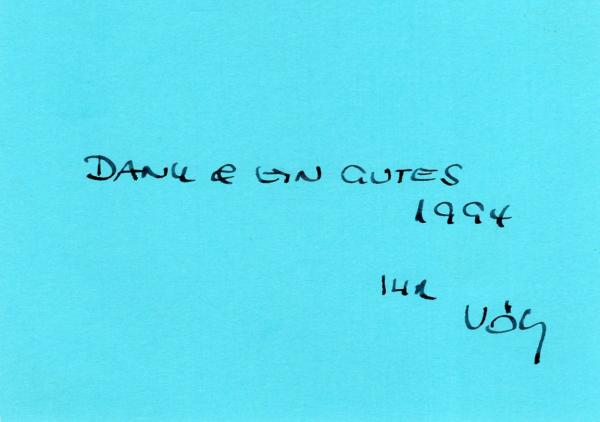 DANK & EIN GUTES
1994
IHR
VÖG